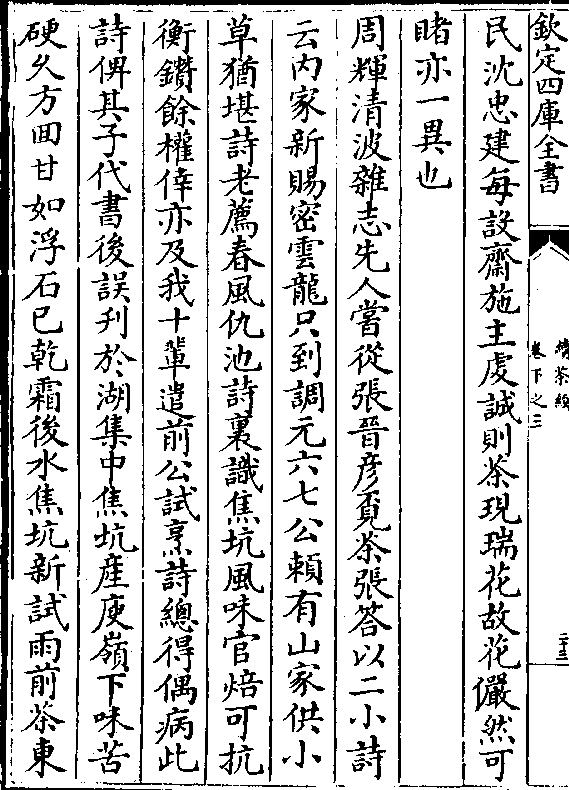 欽定四庫全書
續茶經
卷下之三
二十三
民沈忠建每設齋施主虔誠則茶現瑞花故花儼然可
睹亦一異也
周輝清波雜志先人嘗從張晉彥覓茶張答以二小詩
云内家新賜密雲龍只到調元六七公賴有山家供小
草猶堪詩老薦春風仇池詩裏識焦坑風味官焙可抗
衡鑽餘權倖亦及我十輩遣前公試烹詩總得偶病此
詩俾其子代書後誤刋於湖集中焦坑産庾嶺下味苦
硬久方回甘如浮石已乾霜後水焦坑新試雨前茶東